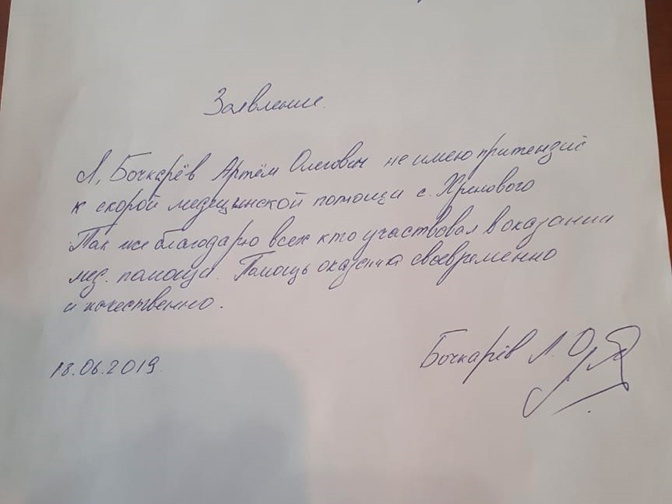 Заявление.
Я, Бочкарёв Артём Олегович не имею притензий
к скорой медицинской помощи с. Хренового
Так же благодарю всех кто участвовал в оказании
мед. помощи. Помощь оказана своевременно
и качественно.
18.06.2019 Бочкарёв А. О.